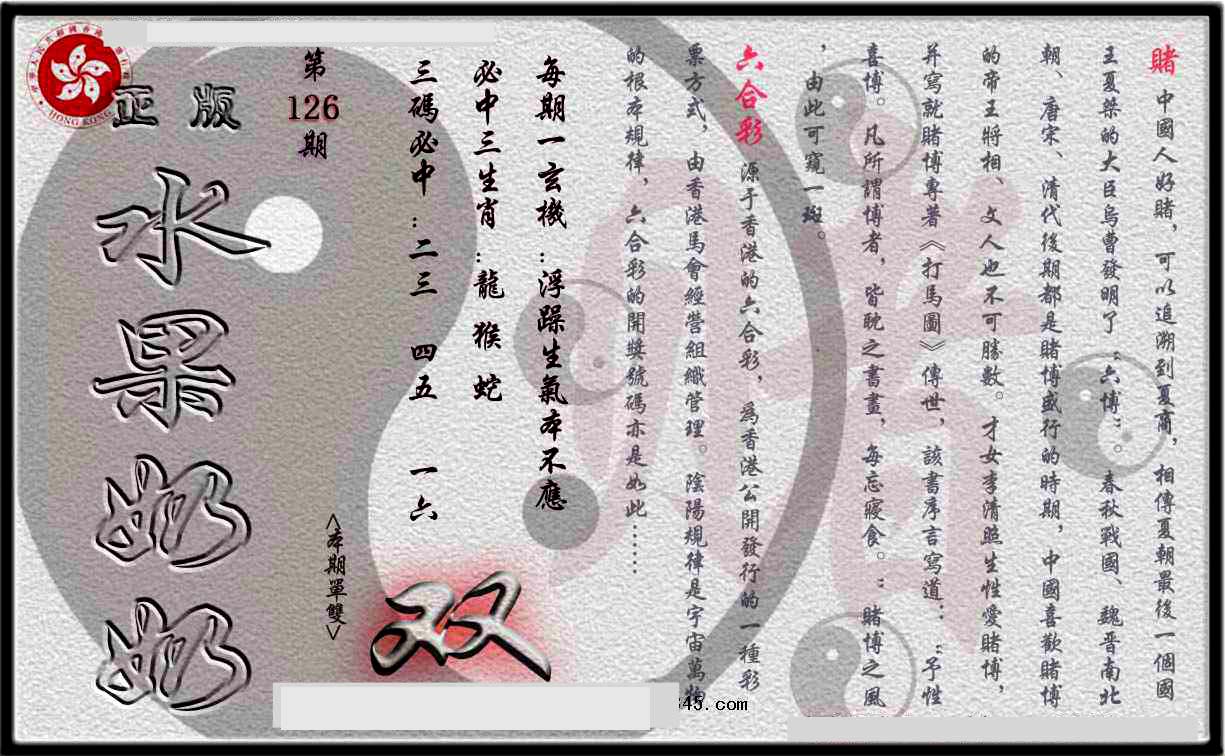 賭 中國人好賭，可以追溯到夏商，相傳夏朝最後一個國
王夏桀的大臣烏曹發明了“六博”。春秋戰國、魏晋南北
朝、唐宋、清代後期都是賭博盛行的時期，中國喜歡賭博
的帝王將相、文人也不可勝數。才女李清照生性愛賭博，
并寫就賭博專著《打馬圖》傳世，該書序言寫道：“予性
喜博。凡所謂博者，皆耽之書晝，每忘寢食。”賭博之風
，由此可窺一斑。
六合彩 源于香港的六合彩，為香港公開發行的一種彩
票方式，由香港馬會經營組織管理。陰陽規律是宇宙萬物
的根本規律，六合彩的開獎號碼亦是如此……
每期一玄機：浮躁生氣本不應
必中三生肖：龍 猴 蛇
三碼必中：二三 四五 一六
<本期單雙>
双
第126期
正版
水果奶奶
HONG KONG
345.com